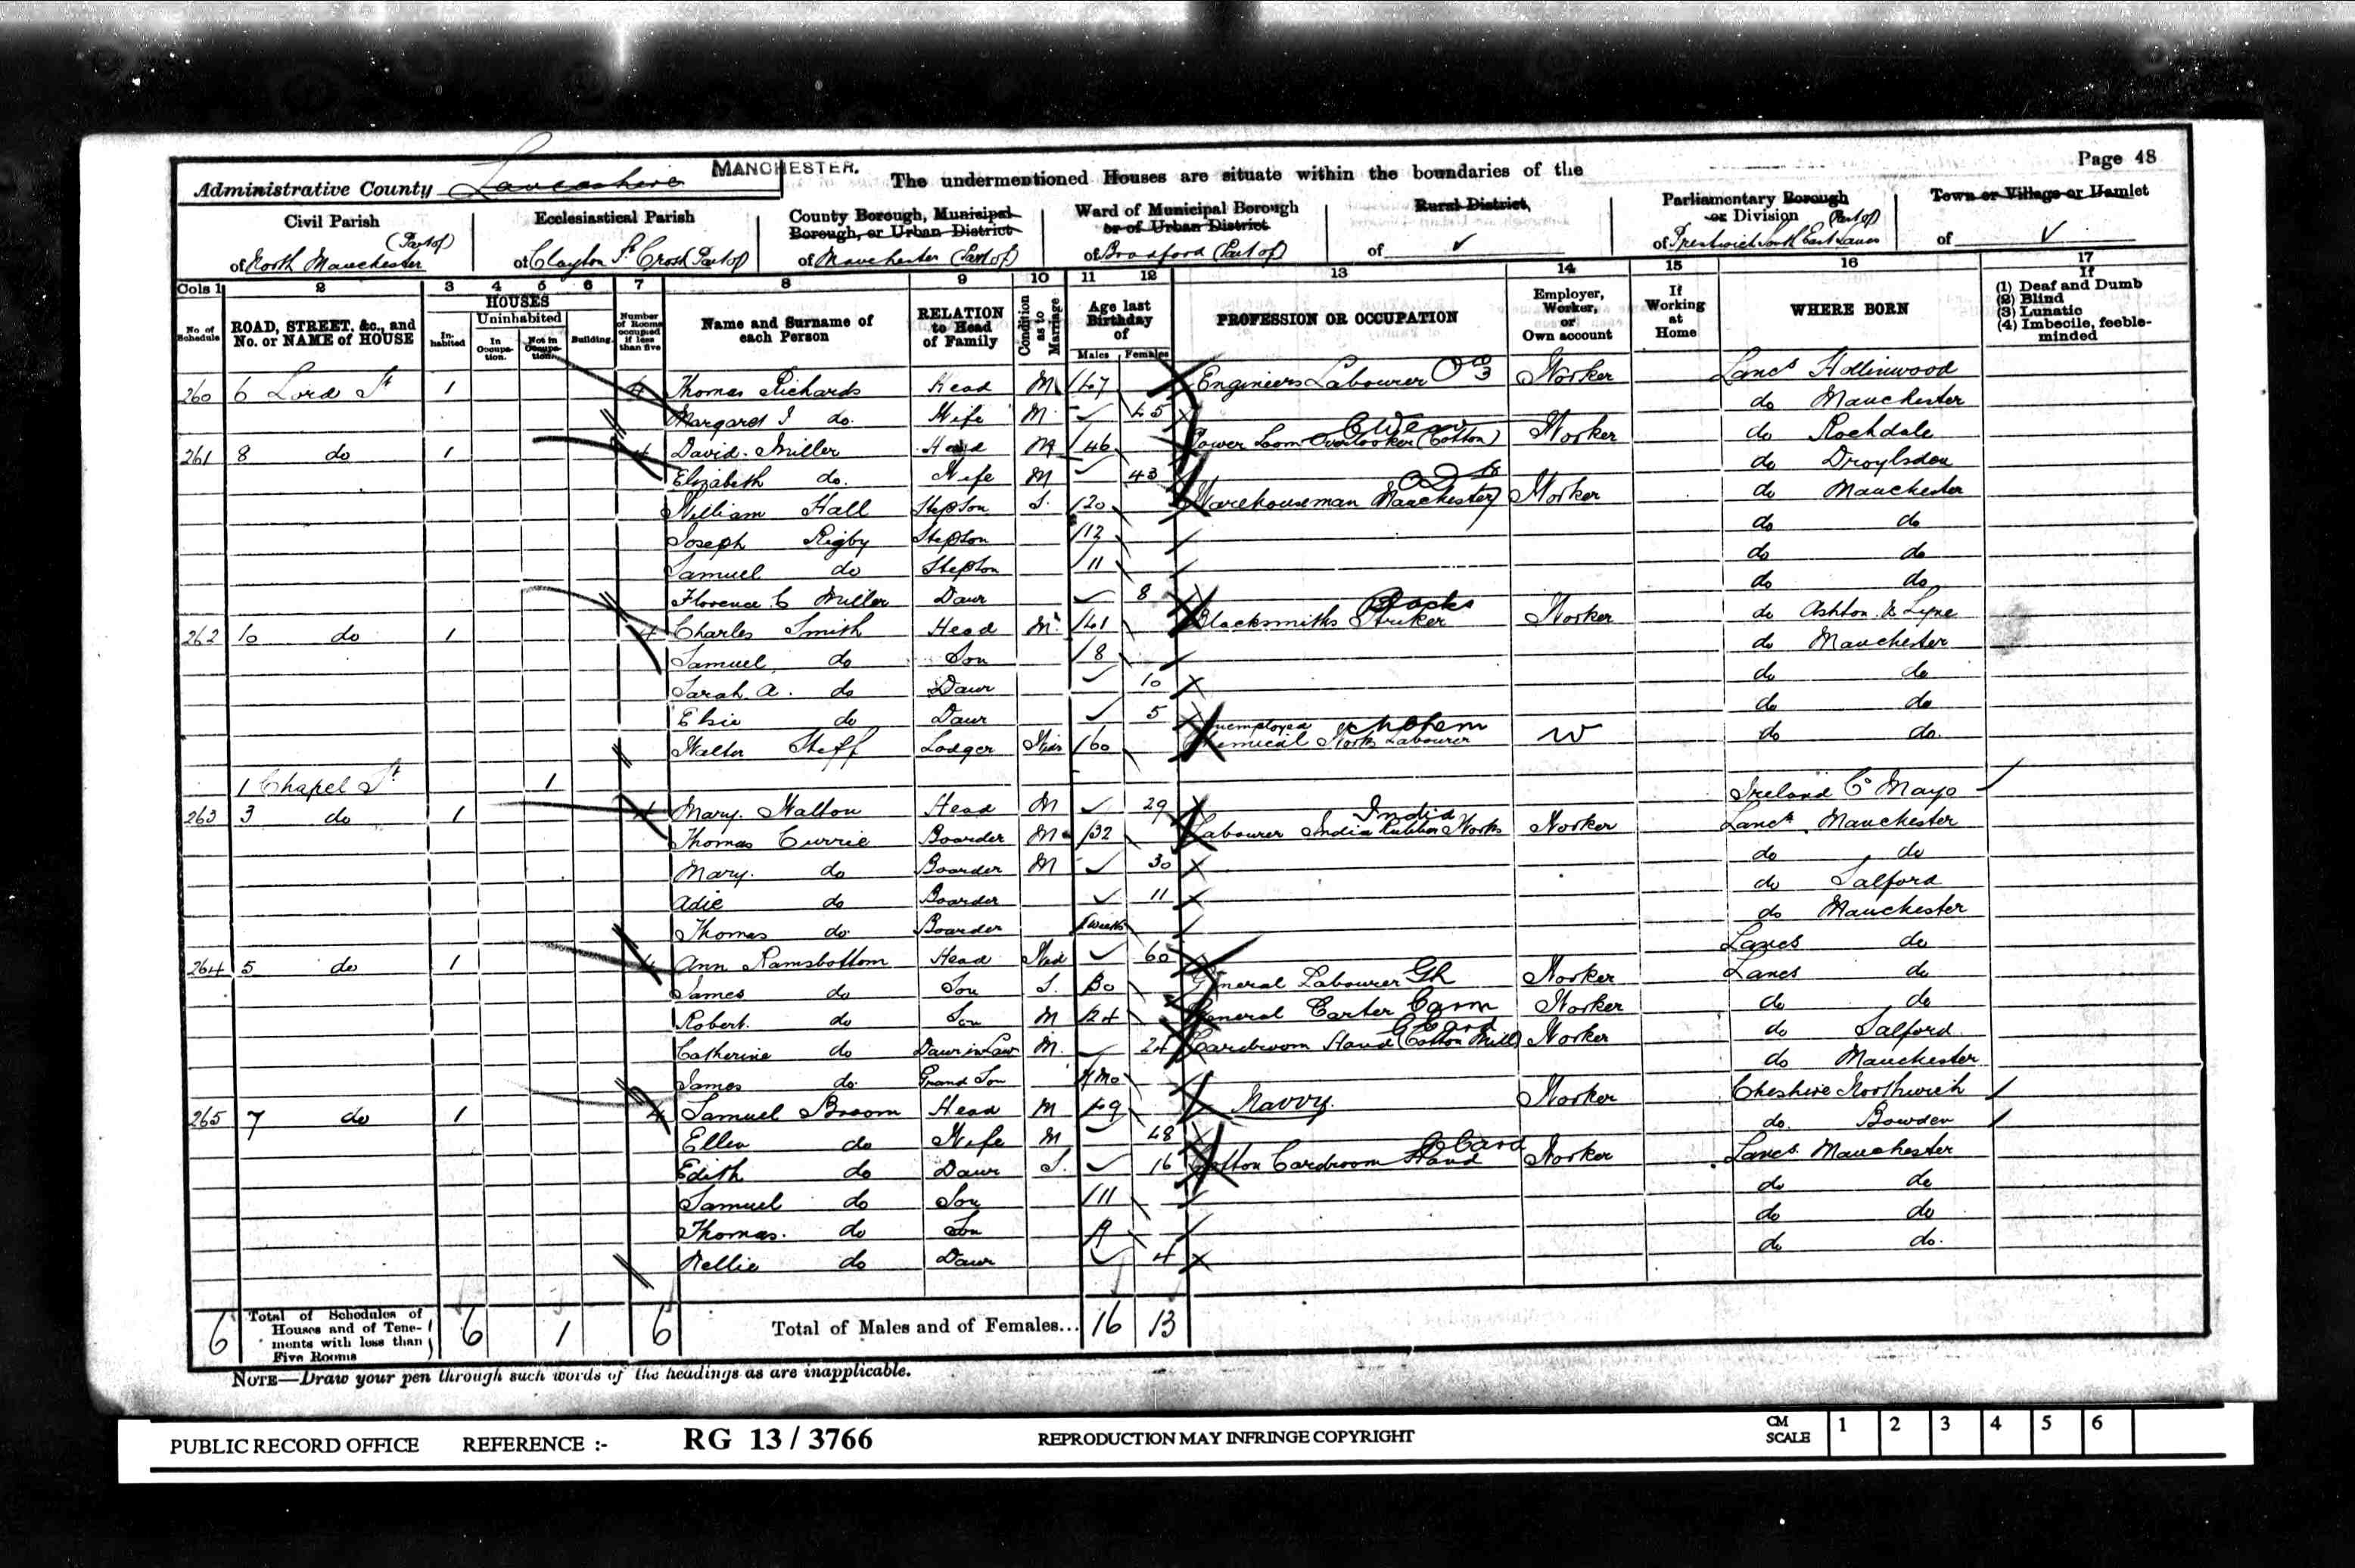 Page 48
Administrative County Lancashire MANCHESTER. The undermentioned Houses are situate within the boundaries of the
Civil Parish Ecclesiastical Parish County Borough, Municipal Borough, or Urban District Ward of Municipal Borough or of Urban District Rural District, Parliamentary Borough or Division Town or Village or Hamlet
of North Manchester (Part of) of Clayton St Cross Part of of Manchester (Part of) of Bradford (Part of) of ✓ of Prestwich South East Lancs (Part of) of ✓
Cols 1 2 3 4 5 6 7 8 9 10 11 12 13 14 15 16 17
No. of Schedule ROAD, STREET, &c., and No. or NAME of HOUSE HOUSES Inhabited Uninhabited In Occupation. Not in Occupation. Building. Number of Rooms occupied if less than five Name and Surname of each Person RELATION to Head of Family Condition as to Marriage Age last Birthday of Males Females PROFESSION OR OCCUPATION Employer, Worker, or Own account If Working at Home WHERE BORN If (1) Deaf and Dumb (2) Blind (3) Lunatic (4) Imbecile, feeble-minded
260 6 Lord St 1 4 Thomas Richards Head M 47 Engineers Labourer Worker Lancs Hollinwood
Margaret J do. Wife M 45 do Manchester
261 8 do 1 4 David Miller Head M 46 Power Loom Overlooker (Cotton) C Weav Worker do Rochdale
Elizabeth do. Wife M 43 do Droylsden
William Hall StepSon S. 20 Warehouseman Manchester Worker do Manchester
Joseph Rigby StepSon 12 do do
Samuel do StepSon 11 do do
Florence C Miller Daur 8 do do
262 10 do 1 4 Charles Smith Head M 41 Blacksmiths Striker Worker do Ashton U Lyne
Samuel do Son 8 do Manchester
Sarah A. do Daur 10 do do
Elsie do Daur 5 do do
Walter Lodger Widr 60 Unemployed Chemical Works Labourer W do do.
1 Chapel St 1
263 3 do 1 4 Mary Walton Head M 29 Ireland Co Mayo
Thomas Currie Boarder M 32 Labourer India Rubber Works India Worker Lancs Manchester
Mary. do Boarder M 30 do do
Adie do Boarder 11 do Salford
Thomas do Boarder 1 weeks do Manchester
264 5 do 1 4 Ann Ramsbottom Head Wid 60 Lancs do
James do Son S. 30 General Labourer GL Worker Lancs do
Robert. do Son M 24 General Carter Carm Worker do do
Catherine do Daur in Law M. 24 Cardroom Hand (Cotton Mill) C Card Worker do Salford
James do Grand Son 7 Mo do Manchester
265 7 do 1 4 Samuel Broom Head M 49 Navvy. Worker Cheshire Northwich
Ellen do Wife M 48 do. Bowden
Edith do Daur S. 16 Cotton Cardroom Hand C Card Worker Lancs. Manchester
Samuel do Son 11 do do
Thomas. do Son do do
Nellie do Daur 4 do do.
6 Total of Schedules of Houses and of Tenements with less than Five Rooms 6 1 6 Total of Males and of Females... 16 13
NOTE—Draw your pen through such words of the headings as are inapplicable.
PUBLIC RECORD OFFICE REFERENCE :- RG 13 / 3766 REPRODUCTION MAY INFRINGE COPYRIGHT CM SCALE 1 2 3 4 5 6